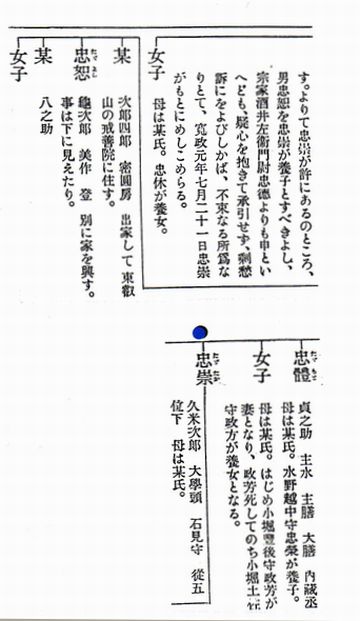 す。よりて忠崇が許にあるのところ、
男忠恕を忠崇が養子とすべきよし、
宗家酒井左衞門尉忠德よりも申とい
へども、疑心を抱きて承引せず、剩愁
訴にをよびしかば、不束なる所爲な
りとて、寛政元年七月二十一日忠崇
がもとにめしこめらる。
女子 母は某氏。忠休が養女。
某 次郎四郎 密圓房 出家して東叡
山の戒善院に住す。
忠恕 龜次郎 美作 登 別に家を興す。
事は下に見えたり。
某 八之助
女子
忠體 貞之助 主水 主膳 大膳 内藏丞
母は某氏。水野越中守忠榮が養子。
女子 母は某氏。はじめ小堀豐後守政芳が
妻となり、政芳死してのち小堀土佐
守政方が養女となる。
忠崇 久米次郎 大學頭 石見守 從五
位下 母は某氏。